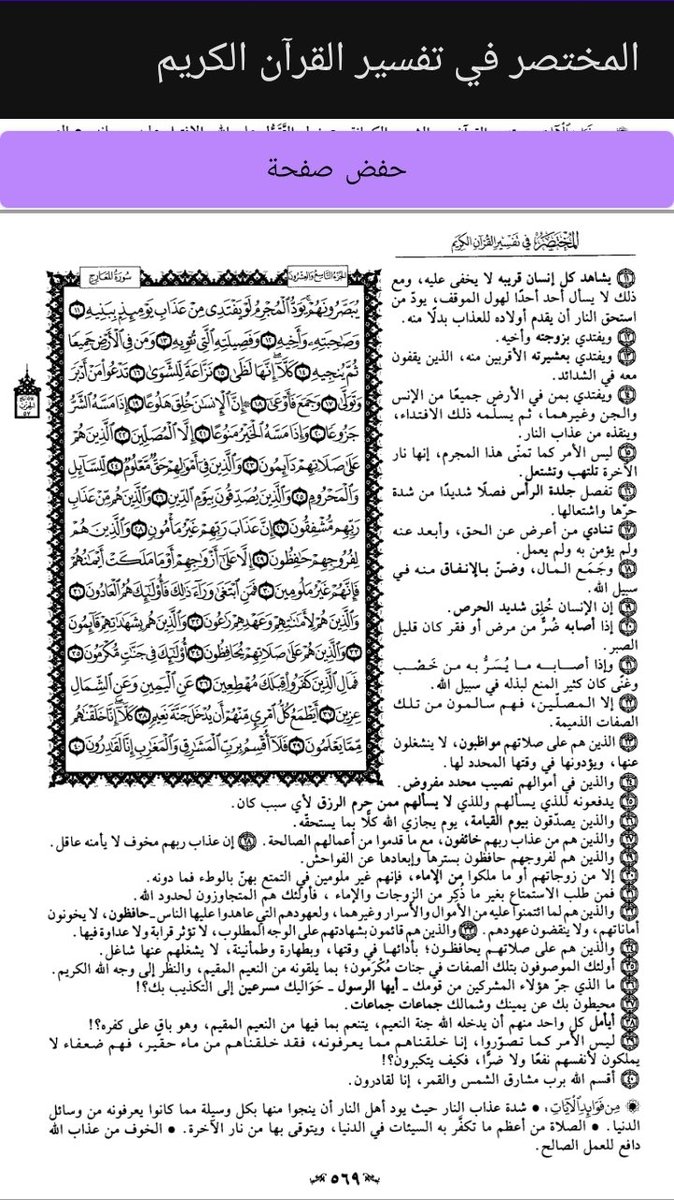 المختصر في تفسير القرآن الكريم
حفض صفحة
المختصر في تفسير القرآن الكريم
الجزء التاسع والعشرون
سورة المعارج
يُبَصَّرُونَهُمْ يَوَدُّ الْمُجْرِمُ لَوْ يَفْتَدِي مِنْ عَذَابِ يَوْمِئِذٍ بِبَنِيهِ ١١
وَصَاحِبَتِهِ وَأَخِيهِ ١٢ وَفَصِيلَتِهِ الَّتِي تُؤْوِيهِ ١٣ وَمَن فِي الْأَرْضِ جَمِيعًا
ثُمَّ يُنجِيهِ ١٤ كَلَّا إِنَّهَا لَظَى ١٥ نَزَّاعَةً لِّلشَّوَى ١٦ تَدْعُوا مَنْ أَدْبَرَ
وَتَوَلَّى ١٧ وَجَمَعَ فَأَوْعَى ١٨ إِنَّ الْإِنسَانَ خُلِقَ هَلُوعًا ١٩ إِذَا مَسَّهُ الشَّرُّ
جَزُوعًا ٢٠ وَإِذَا مَسَّهُ الْخَيْرُ مَنُوعًا ٢١ إِلَّا الْمُصَلِّينَ ٢٢ الَّذِينَ هُمْ
عَلَى صَلَاتِهِمْ دَائِمُونَ ٢٣ وَالَّذِينَ فِي أَمْوَالِهِمْ حَقٌّ مَّعْلُومٌ ٢٤ لِّلسَّائِلِ
وَالْمَحْرُومِ ٢٥ وَالَّذِينَ يُصَدِّقُونَ بِيَوْمِ الدِّينِ ٢٦ وَالَّذِينَ هُم مِّنْ عَذَابِ
رَبِّهِم مُّشْفِقُونَ ٢٧ إِنَّ عَذَابَ رَبِّهِمْ غَيْرُ مَأْمُونٍ ٢٨ وَالَّذِينَ هُمْ
لِفُرُوجِهِمْ حَافِظُونَ ٢٩ إِلَّا عَلَى أَزْوَاجِهِمْ أَوْ مَا مَلَكَتْ أَيْمَانُهُمْ
فَإِنَّهُمْ غَيْرُ مَلُومِينَ ٣٠ فَمَنِ ابْتَغَى وَرَاءَ ذَلِكَ فَأُولَئِكَ هُمُ الْعَادُونَ ٣١
وَالَّذِينَ هُمْ لِأَمَانَاتِهِمْ وَعَهْدِهِمْ رَاعُونَ ٣٢ وَالَّذِينَ هُم بِشَهَادَاتِهِمْ قَائِمُونَ
٣٣ وَالَّذِينَ هُمْ عَلَى صَلَاتِهِمْ يُحَافِظُونَ ٣٤ أُولَئِكَ فِي جَنَّاتٍ مُّكْرَمُونَ ٣٥
فَمَالِ الَّذِينَ كَفَرُوا قِبَلَكَ مُهْطِعِينَ ٣٦ عَنِ الْيَمِينِ وَعَنِ الشِّمَالِ
عِزِينَ ٣٧ أَيَطْمَعُ كُلُّ امْرِئٍ مِّنْهُمْ أَن يُدْخَلَ جَنَّةَ نَعِيمٍ ٣٨ كَلَّا إِنَّا خَلَقْنَاهُم
مِّمَّا يَعْلَمُونَ ٣٩ فَلَا أُقْسِمُ بِرَبِّ الْمَشَارِقِ وَالْمَغَارِبِ إِنَّا لَقَادِرُونَ ٤٠
١١ يشاهد كل إنسان قريبه لا يخفى عليه، ومع
ذلك لا يسأل أحد أحدًا لهول الموقف، يودّ من
استحق النار أن يقدم أولاده للعذاب بدلًا منه.
١٢ ويفتدي بزوجته وأخيه.
١٣ ويفتدي بعشيرته الأقربين منه، الذين يقفون
معه في الشدائد.
١٤ ويفتدي بمن في الأرض جميعًا من الإنس
والجن وغيرهما، ثم يسلّمه ذلك الافتداء،
وينقذه من عذاب النار.
١٥ ليس الأمر كما تمنّى هذا المجرم، إنها نار
الآخرة تلتهب وتشتعل.
١٦ تفصل جلدة الرأس فصلًا شديدًا من شدة
حرّها واشتعالها.
١٧ تنادي من أعرض عن الحق، وأبعد عنه
ولم يؤمن به ولم يعمل.
١٨ وجَمَع المال، وضنّ بالإنفاق منه في
سبيل الله.
١٩ إن الإنسان خُلِق شديد الحرص.
٢٠ إذا أصابه ضُرٌّ من مرض أو فقر كان قليل
الصبر.
٢١ وإذا أصابه ما يُسَرُّ به من خَصْب
وغنًى كان كثير المنع لبذله في سبيل الله.
٢٢ إلا المصلّين، فهم سالمون من تلك
الصفات الذميمة.
٢٣ الذين هم على صلاتهم مواظبون، لا ينشغلون
عنها، ويؤدونها في وقتها المحدد لها.
٢٤ والذين في أموالهم نصيب محدد مفروض.
٢٥ يدفعونه للذي يسألهم وللذي لا يسألهم ممن حرم الرزق لأي سبب كان.
٢٦ والذين يصدّقون بيوم القيامة، يوم يجازي الله كلًا بما يستحقّه.
٢٧ والذين هم من عذاب ربهم خائفون، مع ما قدموا من أعمالهم الصالحة. ٢٨ إن عذاب ربهم مخوف لا يأمنه عاقل.
٢٩ والذين هم لفروجهم حافظون بسترها وإبعادها عن الفواحش.
٣٠ إلا من زوجاتهم أو ما ملكوا من الإماء، فإنهم غير ملومين في التمتع بهنّ بالوطء فما دونه.
٣١ فمن طلب الاستمتاع بغير ما ذُكِر من الزوجات والإماء ، فأولئك هم المتجاوزون لحدود الله.
٣٢ والذين هم لما ائتمنوا عليه من الأموال والأسرار وغيرهما، ولعهودهم التي عاهدوا عليها الناس ـ حافظون، لا يخونون
أماناتهم، ولا ينقضون عهودهم. ٣٣ والذين هم قائمون بشهادتهم على الوجه المطلوب، لا تؤثر قرابة ولا عداوة فيها.
٣٤ والذين هم على صلاتهم يحافظون؛ بأدائها في وقتها، وبطهارة وطمأنينة، لا يشغلهم عنها شاغل.
٣٥ أولئك الموصوفون بتلك الصفات في جنات مُكْرَمون؛ بما يلقونه من النعيم المقيم، والنظر إلى وجه الله الكريم.
٣٦ ما الذي جرّ هؤلاء المشركين من قومك ـ أيها الرسول ـ حَوَاليك مسرعين إلى التكذيب بك؟!
٣٧ محيطون بك عن يمينك وشمالك جماعات جماعات.
٣٨ أيأمل كل واحد منهم أن يدخله الله جنة النعيم، يتنعم بما فيها من النعيم المقيم، وهو باقٍ على كفره؟!
٣٩ ليس الأمر كما تصوّروا، إنا خلقناهم مما يعرفونه، فقد خلقناهم من ماء حقير، فهم ضعفاء لا
يملكون لأنفسهم نفعًا ولا ضرًّا، فكيف يتكبرون؟!
٤٠ أقسم الله برب مشارق الشمس والقمر، إنا لقادرون.
مِن فَوَائِدِ الْآيَاتِ: • شدة عذاب النار حيث يود أهل النار أن ينجوا منها بكل وسيلة مما كانوا يعرفونه من وسائل
الدنيا. • الصلاة من أعظم ما تكفَّر به السيئات في الدنيا، ويتوقى بها من نار الآخرة. • الخوف من عذاب الله
دافع للعمل الصالح.
٥٦٩